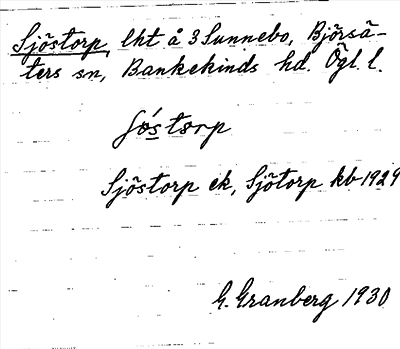 Sjöstorp, lht å 3 Sunnebo, Björsä-
ters sn, Bankekinds hd. Ögl. l.
Sjöstorp ek, Sjötorp kb 1929
G. Granberg 1930